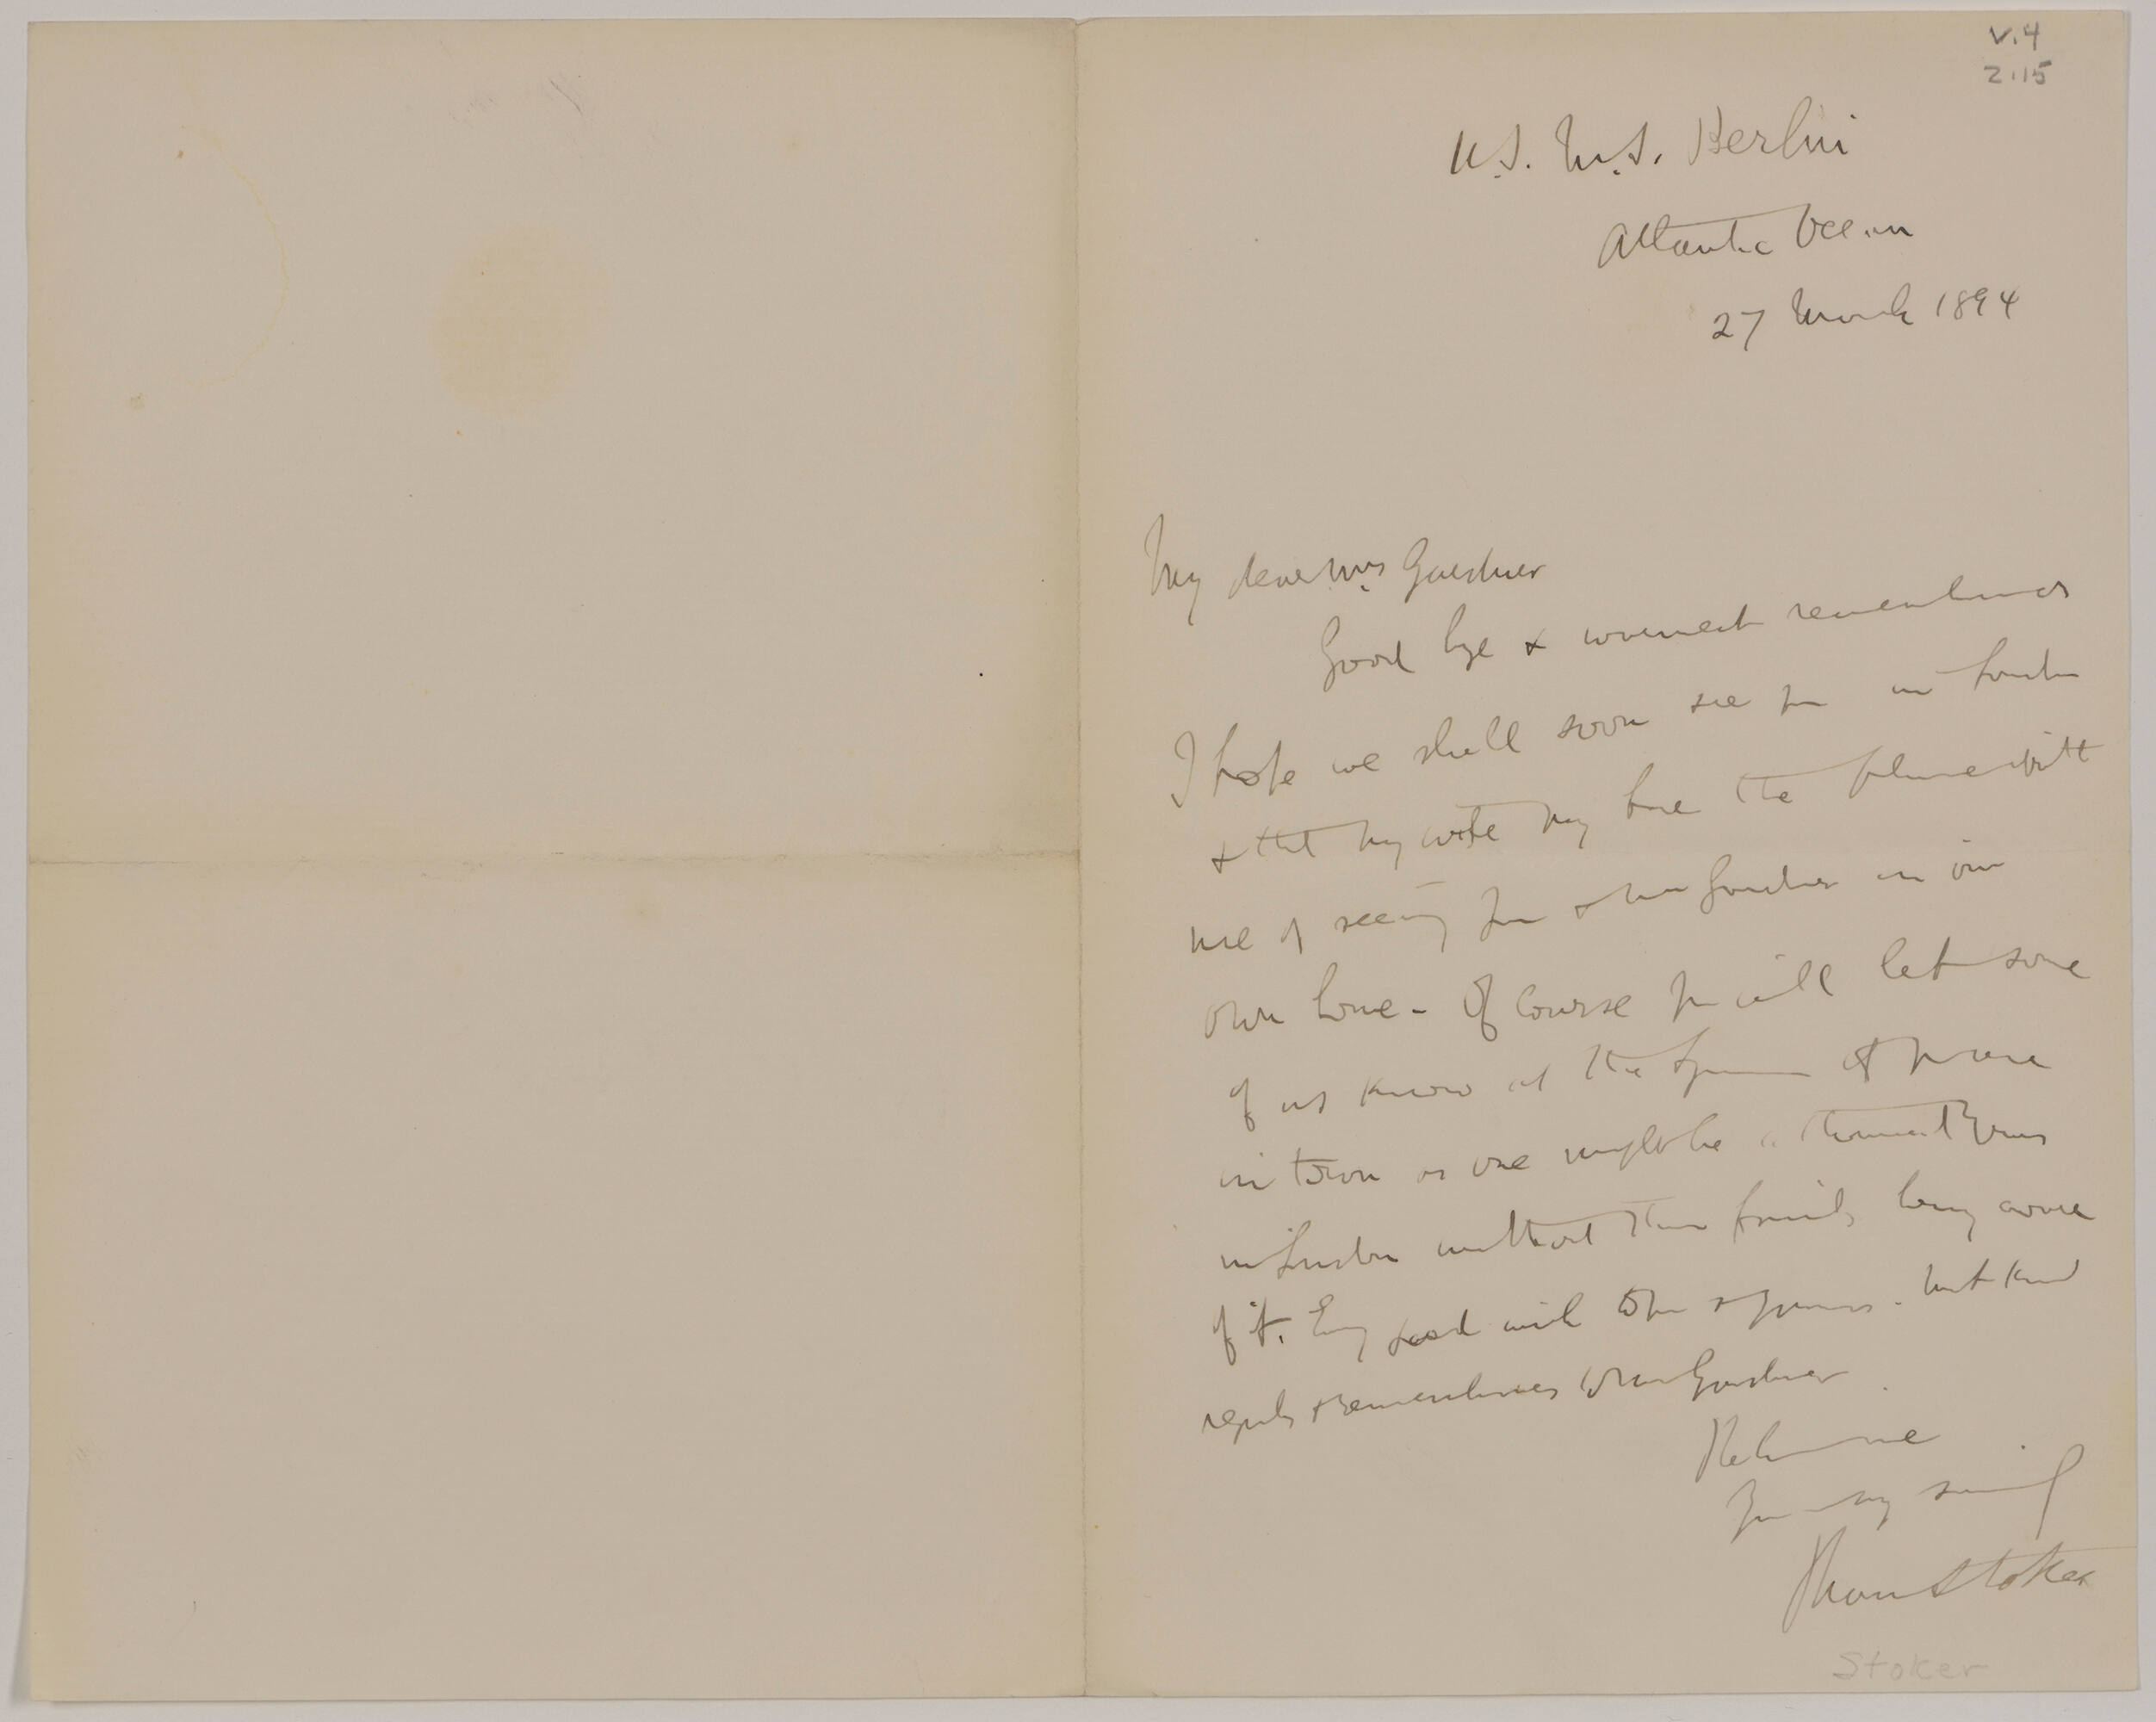 V.4
2.15
U.S. M.S. Berlin
Atlantic Ocean
27 March 1894
My dear Mrs Gardner
Good bye & warmest remembrances
I hope we shall soon see you in London
& that my wife may have the pleasure with
me of seeing you & Mr Gardner in our
own home - Of course you will let some
of us know at the Lyceum if you are
in town as one might be a thousand years
in London without their friends being aware
of it. Every good wish to you & yours - but kind
regards & remembrances to Mr Gardner.
Believe me
Yours very sincerely
Bram Stoker
Stoker